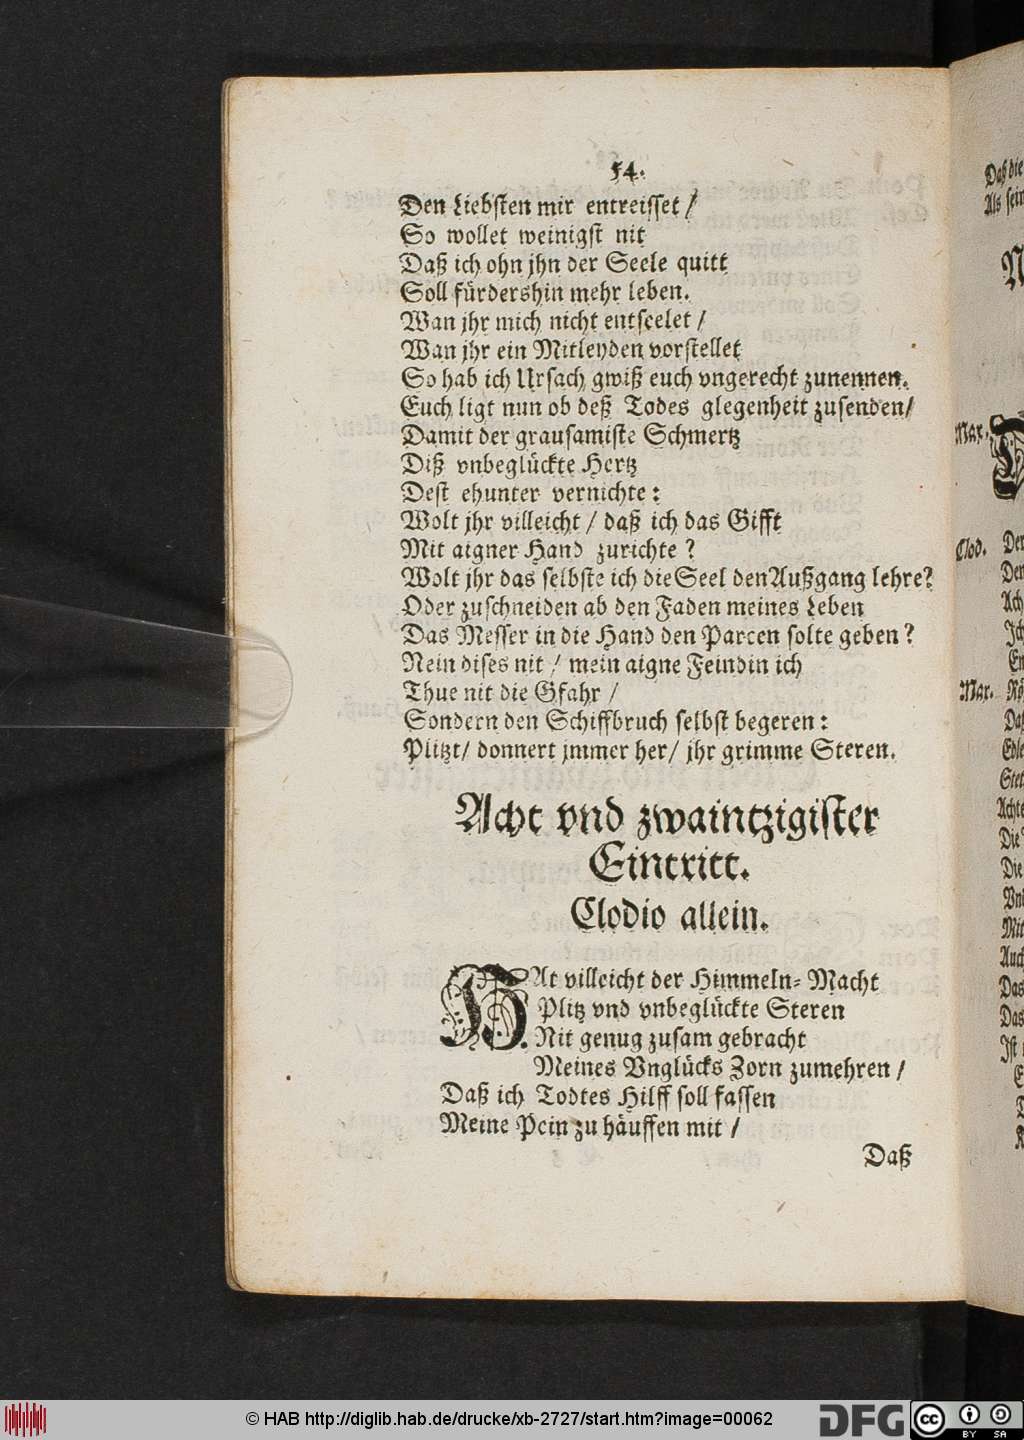 54.
Den Liebsten mir entreisset /
So wollet weinigst nit
Daß ich ohn jhn der Seele quitt
Soll fürdershin mehr leben.
Wan jhr mich nicht entseelet /
Wan jhr ein Mitleyden vorstellet
So hab ich Ursach gwiß euch vngerecht zunennen.
Euch ligt nun ob deß Todes glegenheit zusenden /
Damit der grausamiste Schmertz
Diß vnbeglückte Hertz
Dest ehunter vernichte :
Wolt jhr villeicht / daß ich das Gifft
Mit aigner Hand zurichte ?
Wolt jhr das selbste ich die Seel den Außgang lehre?
Oder zuschneiden ab den Faden meines Leben
Das Messer in die Hand den Parcen solte geben ?
Nein dises nit / mein aigne Feindin ich
Thue nit die Gfahr /
Sondern den Schiffbruch selbst begeren :
Plitzt / donnert jmmer her / jhr grimme Steren.
Acht vnd zwaintzigister
Eintritt.
Clodio allein.
HAt villeicht der Himmeln- Macht
Plitz vnd vnbeglückte Steren
Nit genug zusam gebracht
Meines Vnglücks Zorn zumehren /
Daß ich Todtes Hilff soll fassen
Meine Pein zu häuffen mit /
Daß
Daß die
Als sein
Mar.
Clod.
Den
Ach
Ich
Mar.
Daß
Edle
Stet
Achte
Die
Die
Vnd
Mit
Auch
Das
Das
Ist
© HAB http://diglib.hab.de/drucke/xb-2727/start.htm?image=00062
DFG
cc
BY SA